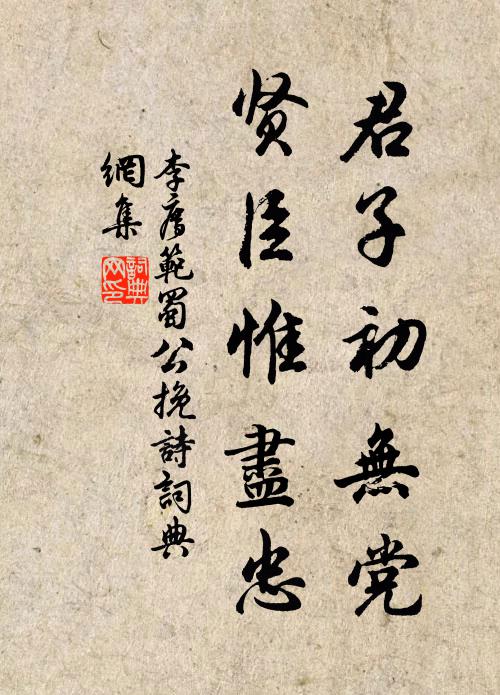 君子初無党
贤臣惟盡忠
李廌範蜀公挽詩詞典
網集
詞典網印